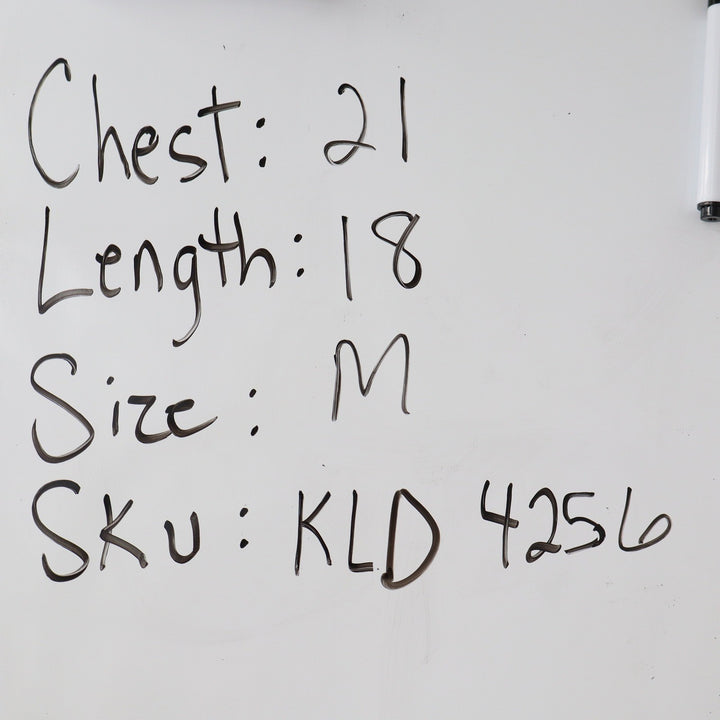 Chest: 21
Length: 18
Size: M
SKU: KLD 4256